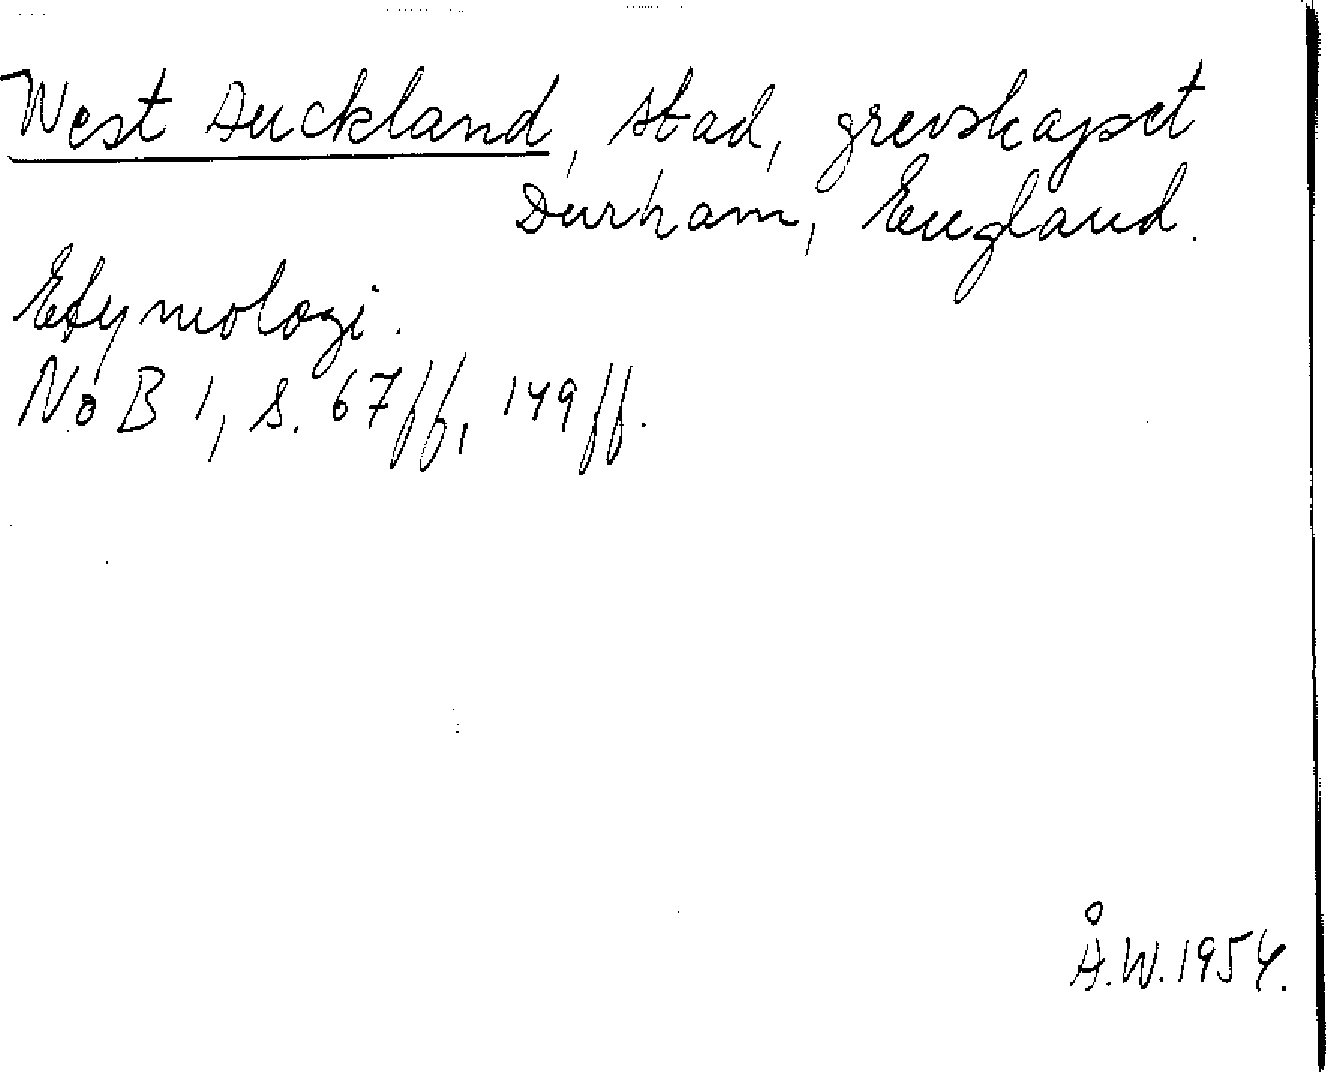 West Auckland, stad, grevskapet
Durham, England.
Etymologi.
NoB 1, s. 67ff, 149ff.
Å.W. 1954.